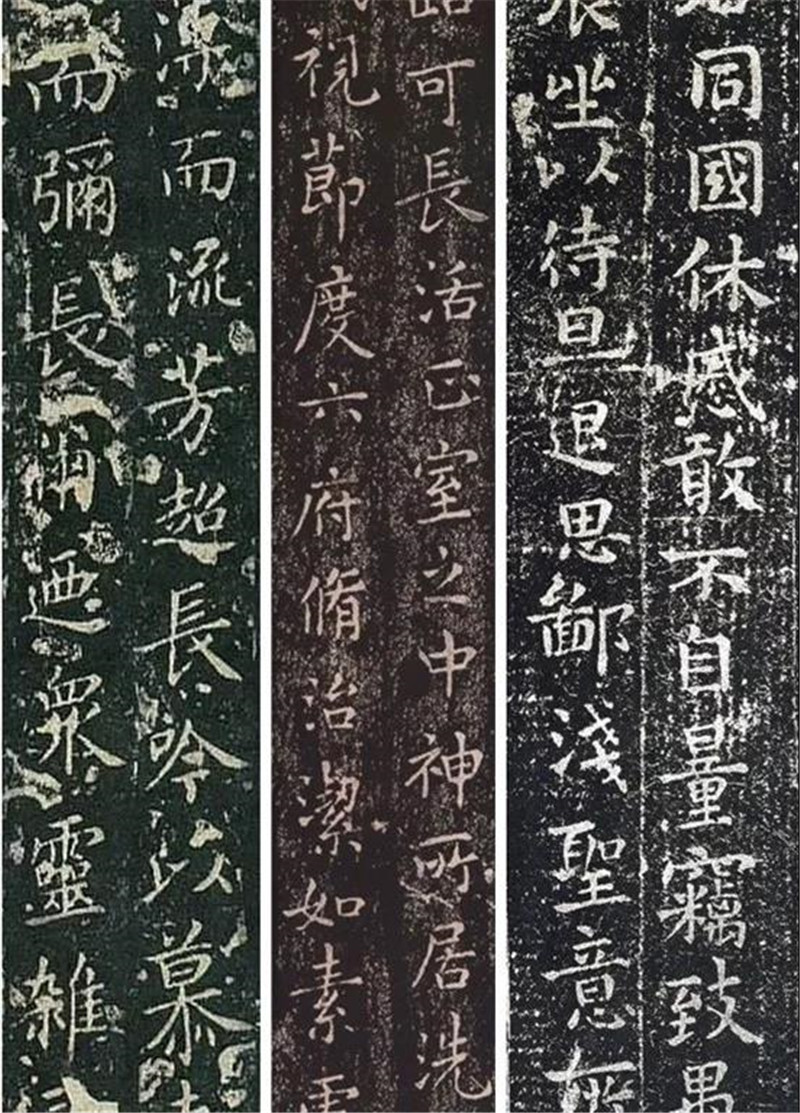 同國休慼敢不自量竊致愚
晨坐以待旦退思鄙淺聖意所
可長活正室之中神所居洗
視節度六府脩治潔如素
薄而流芳超長吟以慕
而彌長爾迺衆靈雜